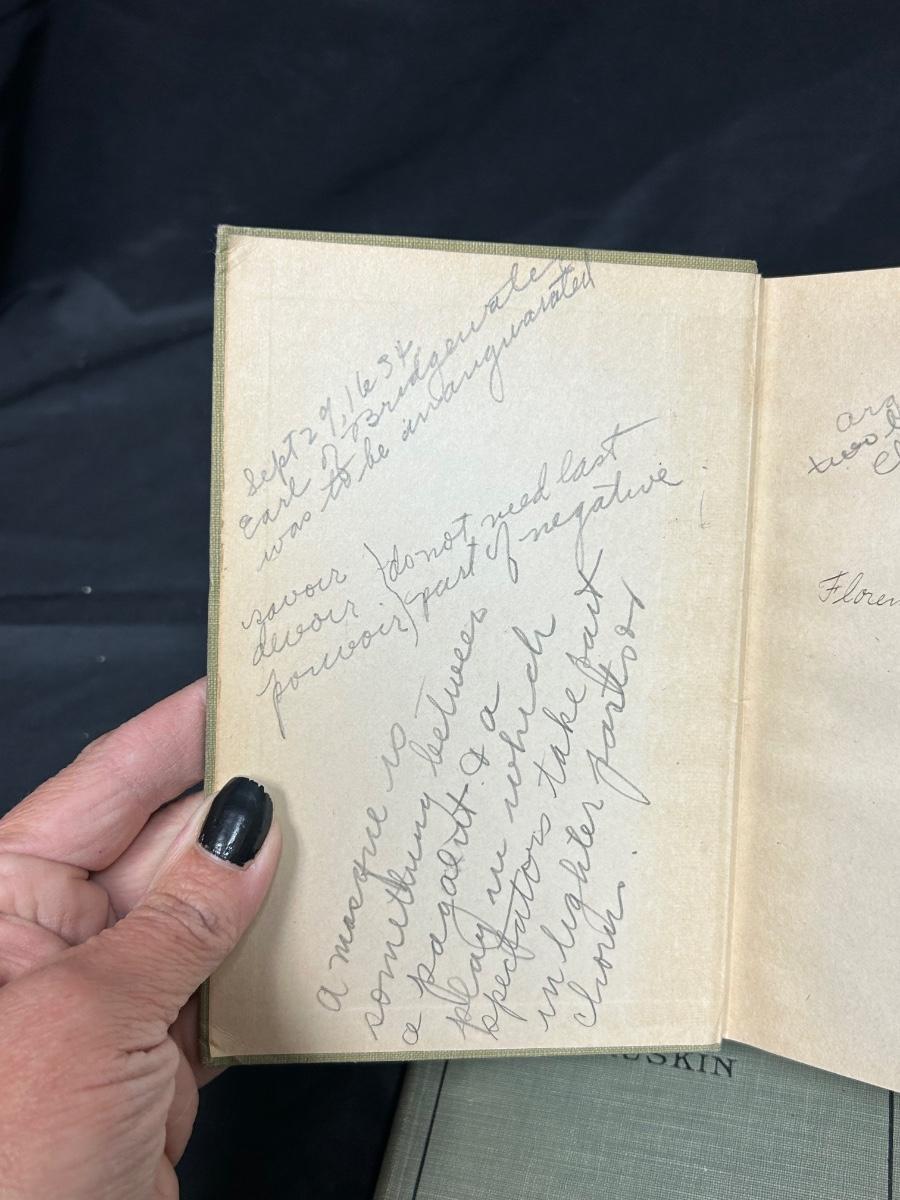 Sept 29, 1634,
Earl of Bridgewater
was to be inanguarated
savoir
devoir
pouvoir
do not need last
part of negative
a masque is
something between
a pagaent & a
play in which
spectators take part
in lighter parts or
chorus.
two
Floren
RUSKIN